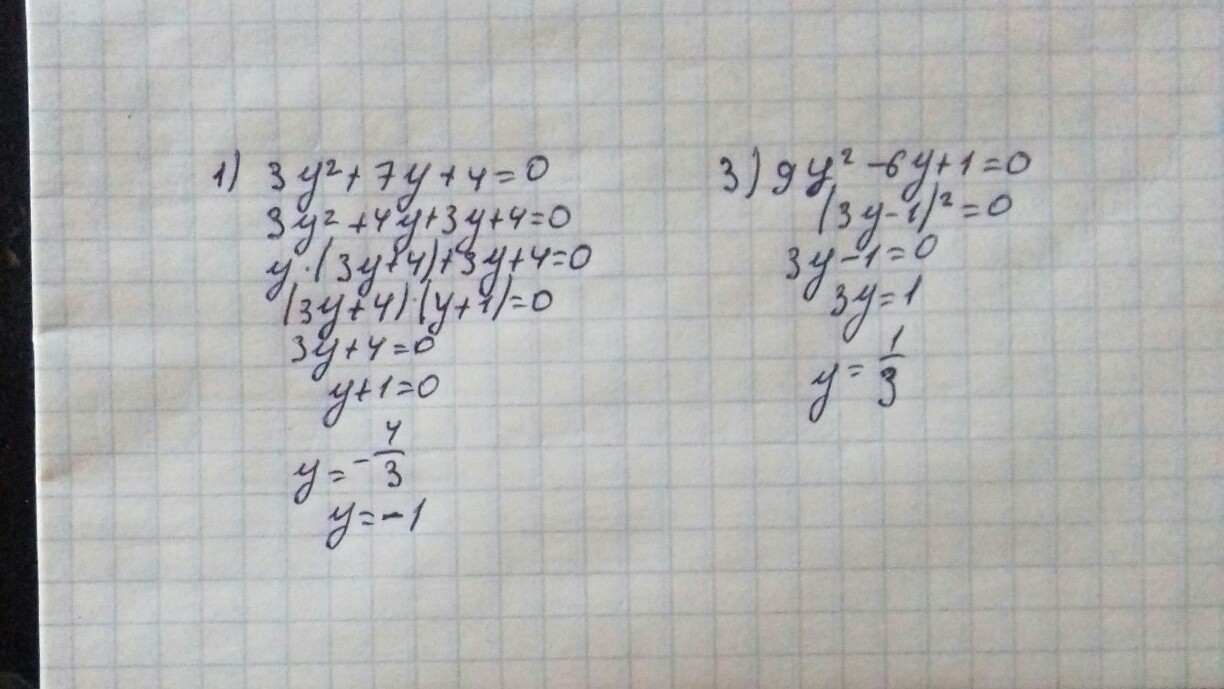 1) 3y² + 7y + 4 = 0
3y² + 4y + 3y + 4 = 0
y · (3y + 4) + 3y + 4 = 0
(3y + 4) · (y + 1) = 0
3y + 4 = 0
y + 1 = 0
y = -4/3
y = -1
3) 9y² - 6y + 1 = 0
(3y - 1)² = 0
3y - 1 = 0
3y = 1
y = 1/3